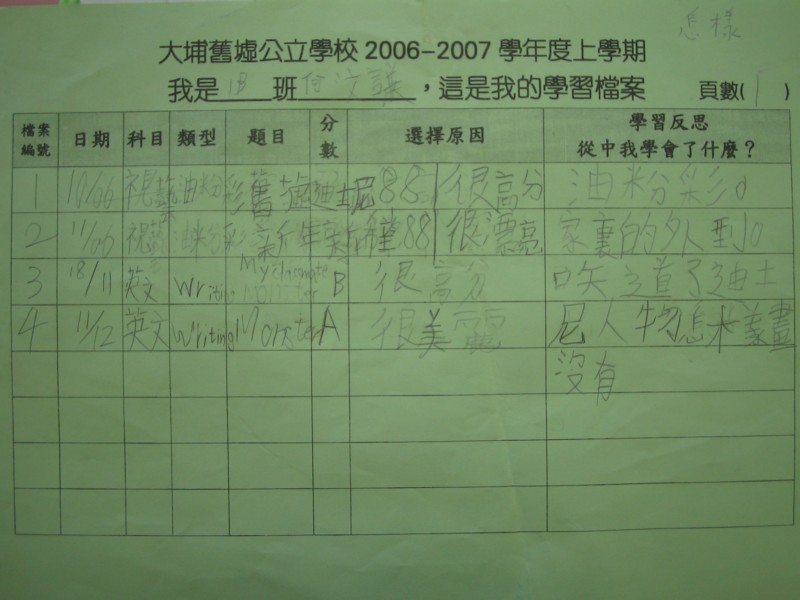 怎樣
大埔舊墟公立學校 2006-2007 學年度上學期
我是 1B 班 ，這是我的學習檔案 頁數( 1 )
檔案編號 日期 科目 類型 題目 分數 選擇原因 學習反思 從中我學會了什麼？
1 10/06 視藝 油粉彩 舊 迪士尼 88 很高分 油粉彩。
2 11/06 視藝 油粉彩 新年 88 很漂亮 家裏的外型。
3 18/11 英文 Writing My classmate B 很高分 知道了迪士
4 11/12 英文 Writing Monster A 很美麗 尼人物怎樣畫
沒有